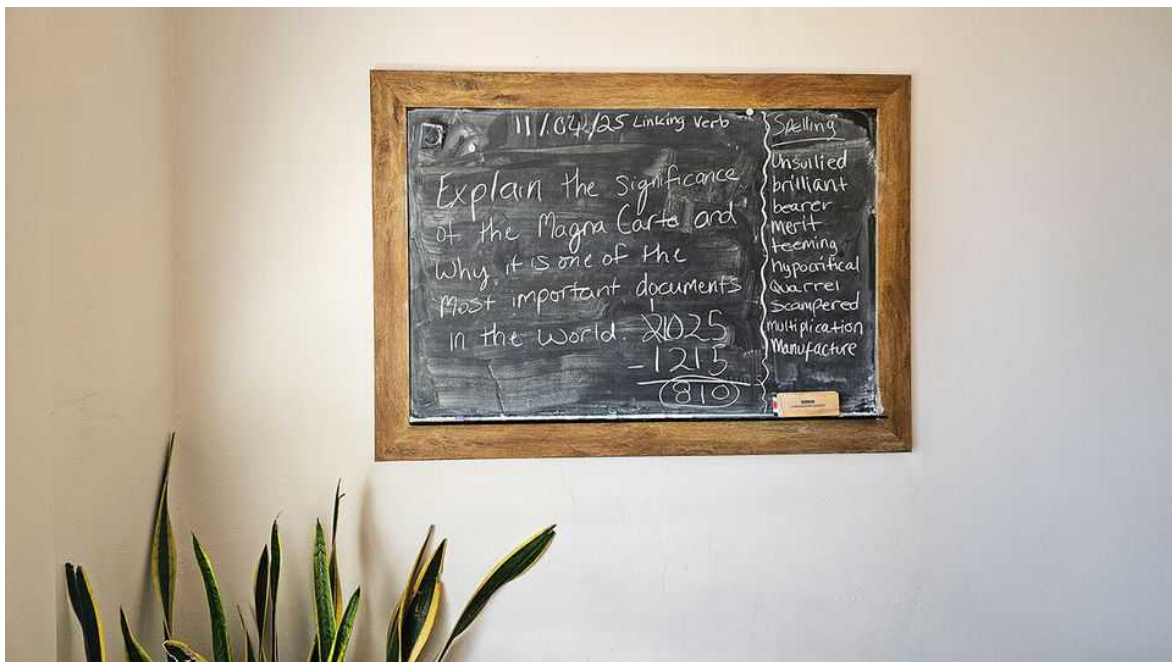 11/04/25 Linking Verb
Explain the significance
of the Magna Carta and
Why it is one of the
Most important documents
in the World.
1
2025
-1215
810
Spelling
Unsullied
brilliant
bearer
merit
teeming
hypocritical
Quarrel
Scampered
multiplication
Manufacture